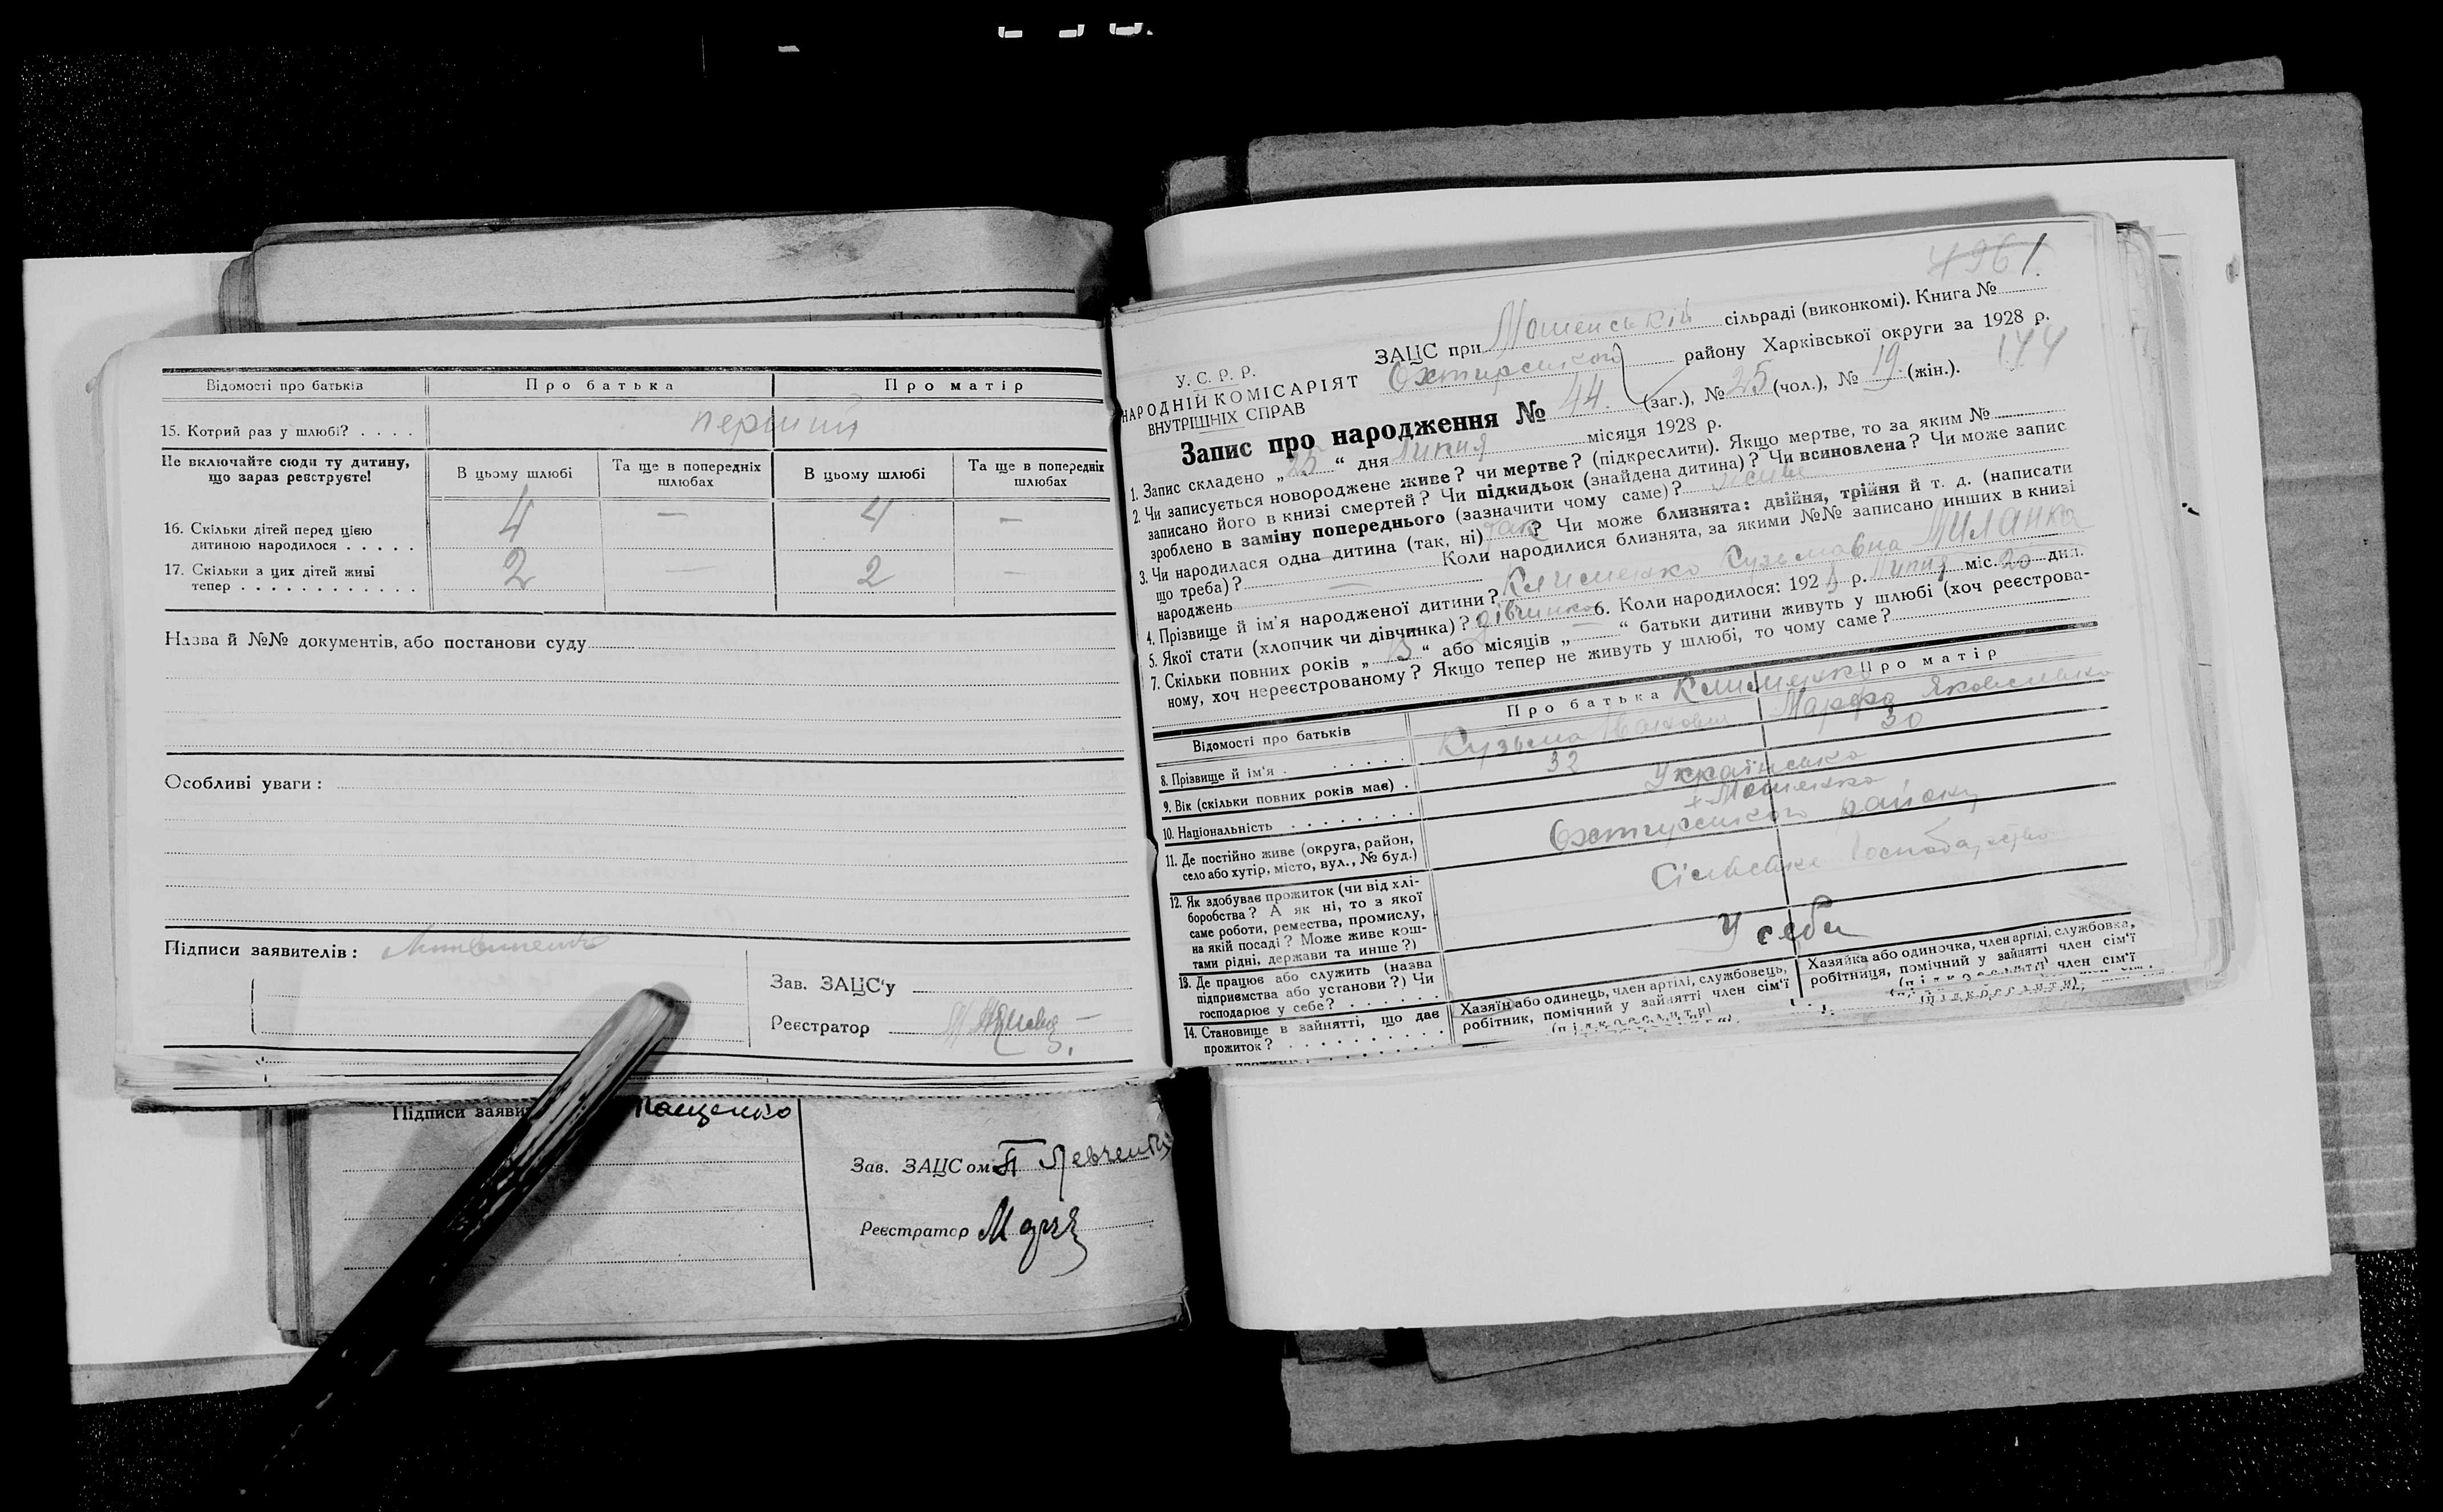 Відомості про батьків Про батька Про матір
15. Котрий раз у шлюбі? . . . . перший
Не включайте сюди ту дитину, що зараз реєструєте! В цьому шлюбі Та ще в попередніх шлюбах В цьому шлюбі Та ще в попередніх шлюбах
16. Скільки дітей перед цією
дитиною народилося . . . . . 4 — 4 —
17. Скільки з цих дітей живі
тепер . . . . . . . . . . . . . 2 — 2 —
Назва й №№ документів, або постанови суду
Особливі уваги:
Підписи заявителів:
Зав. ЗАЦС'у
Реєстратор
Підписи заяви
Зав. ЗАЦСом
Реєстратор
4961.
У. С. Р. Р.
НАРОДНІЙ КОМІСАРІЯТ
ВНУТРІШНІХ СПРАВ
ЗАЦС при Мошенській сільраді (виконкомі). Книга №
Охтирського району Харківської округи за 1928 р.
144
Запис про народження № 44. (заг.), № 25 (чол.), № 19. (жін.).
1. Запис складено „25“ дня липня місяця 1928 р.
2. Чи записується новороджене живе? чи мертве? (підкреслити). Якщо мертве, то за яким №
записано його в книзі смертей? Чи підкидьок (знайдена дитина)? Чи всиновлена? Чи може запис
зроблено в заміну попереднього (зазначити чому саме)? живе
3. Чи народилася одна дитина (так, ні) так? Чи може близнята: двійня, трійня й т. д. (написати
що треба)? — Коли народилися близнята, за якими №№ записано инших в книзі
народжень —
4. Прізвище й ім'я народженої дитини? Клименко Кузьмовна Миланка
5. Якої стати (хлопчик чи дівчинка)? дівчинка 6. Коли народилося: 1928 р. липня міс. 20 дня.
7. Скільки повних років „13“ або місяців „—“ батьки дитини живуть у шлюбі (хоч реєстрова-
ному, хоч нереєстрованому? Якщо тепер не живуть у шлюбі, то чому саме?
Відомості про батьків Про батька Про матір
Клименко
8. Прізвище й ім'я . . . . . . Кузьма Іванович Марфа Яковлевна
9. Вік (скільки повних років має) . 32 30
10. Національність . . . . . . . . Українська
11. Де постійно живе (округа, район,
село або хутір, місто, вул., № буд.) Мошенка
Охтирського району
12. Як здобуває прожиток (чи від хлі-
боробства? А як ні, то з якої
саме роботи, ремества, промислу,
на якій посаді? Може живе кош-
тами рідні, держави та инше?) Сільське господарство
13. Де працює або служить (назва
підприємства або установи?) Чи
господарює у себе? . . . . . . У себе
14. Становище в зайнятті, що дає
прожиток? . . . . . . . . . .
Хазяїн або одинець, член артілі, службовець,
робітник, помічний у зайнятті член сім'ї
(підкреслити)
Хазяйка або одиночка, член артілі, службовка,
робітниця, помічний у зайнятті член сім'ї
(підкреслити)